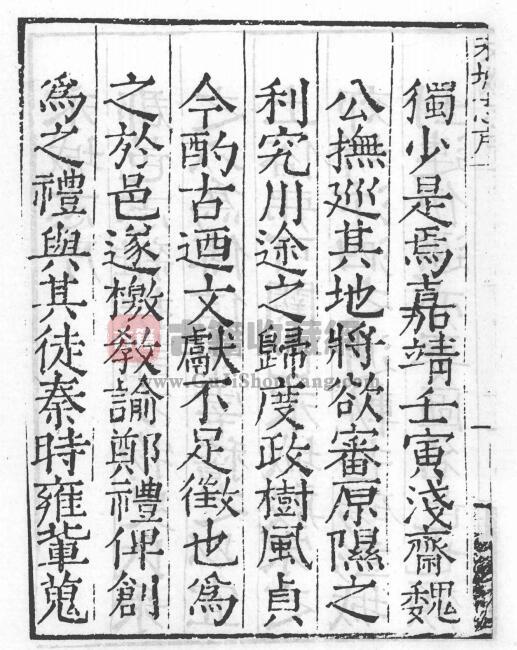 獨少是焉嘉靖壬寅淺齋魏
公撫廵其地將欲審原隰之
利究川途之歸度政樹風貞
今酌古迺文獻不足徵也爲
之於邑遂檄敎諭鄭禮俾創
爲之禮與其徒秦時雍軰蒐
www.GujiShouCang.com